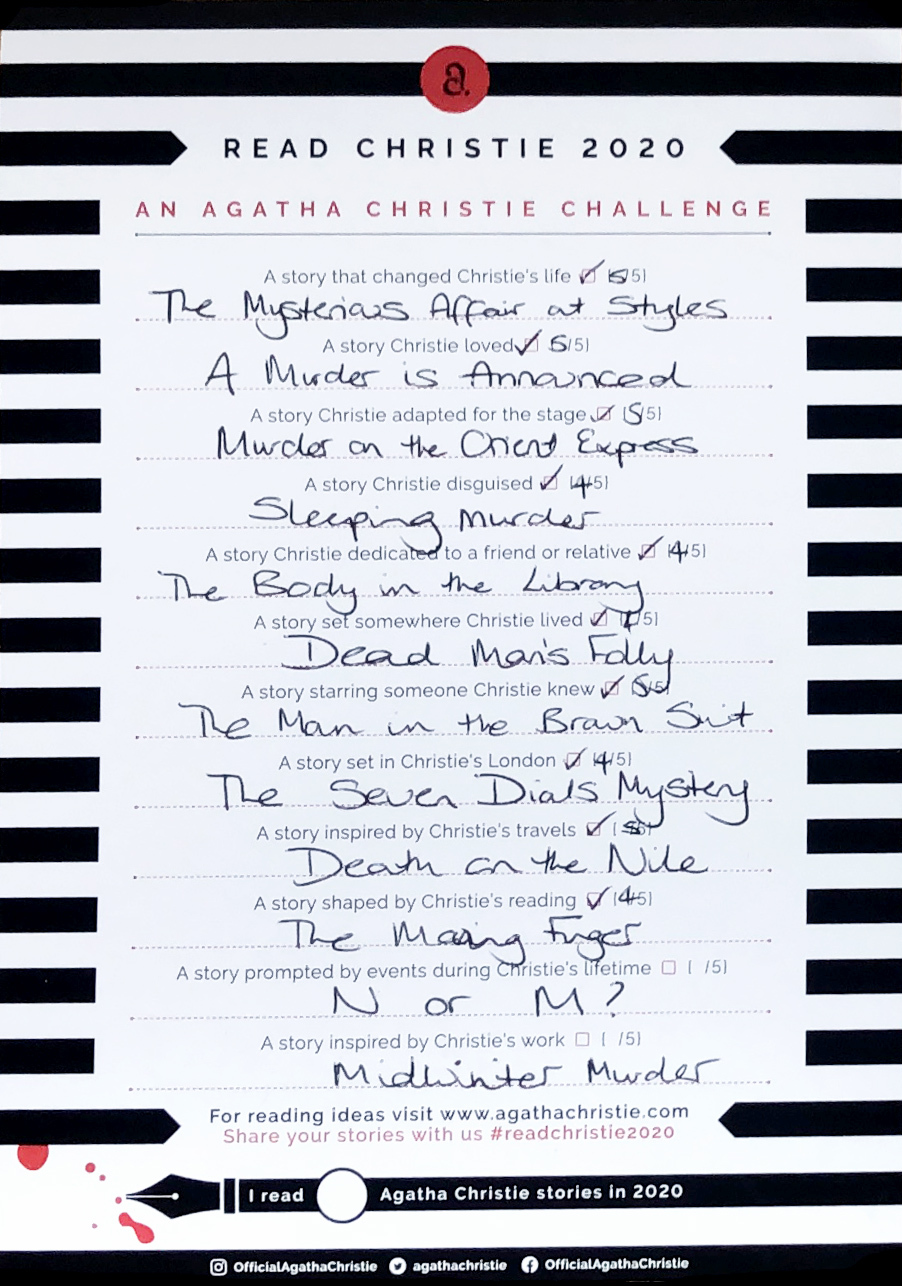 a.
READ CHRISTIE 2020
AN AGATHA CHRISTIE CHALLENGE
A story that changed Christie's life ☑ (5/5)
The Mysterious Affair at Styles
A story Christie loved ☑ 5/5)
A Murder is Announced
A story Christie adapted for the stage ☑ (5/5)
Murder on the Orient Express
A story Christie disguised ☑ (4/5)
Sleeping Murder
A story Christie dedicated to a friend or relative ☑ (4/5)
The Body in the Library
A story set somewhere Christie lived ☑ /5)
Dead Man's Folly
A story starring someone Christie knew ☑ (5/5)
The Man in the Brown Suit
A story set in Christie's London ☑ (4/5)
The Seven Dials Mystery
A story inspired by Christie's travels ☑ (5/5)
Death on the Nile
A story shaped by Christie's reading ☑ (4/5)
The Moving Finger
A story prompted by events during Christie's lifetime ☐ ( /5)
N or M?
A story inspired by Christie's work ☐ ( /5)
Midwinter Murder
For reading ideas visit www.agathachristie.com
Share your stories with us #readchristie2020
I read Agatha Christie stories in 2020
OfficialAgathaChristie agathachristie OfficialAgathaChristie